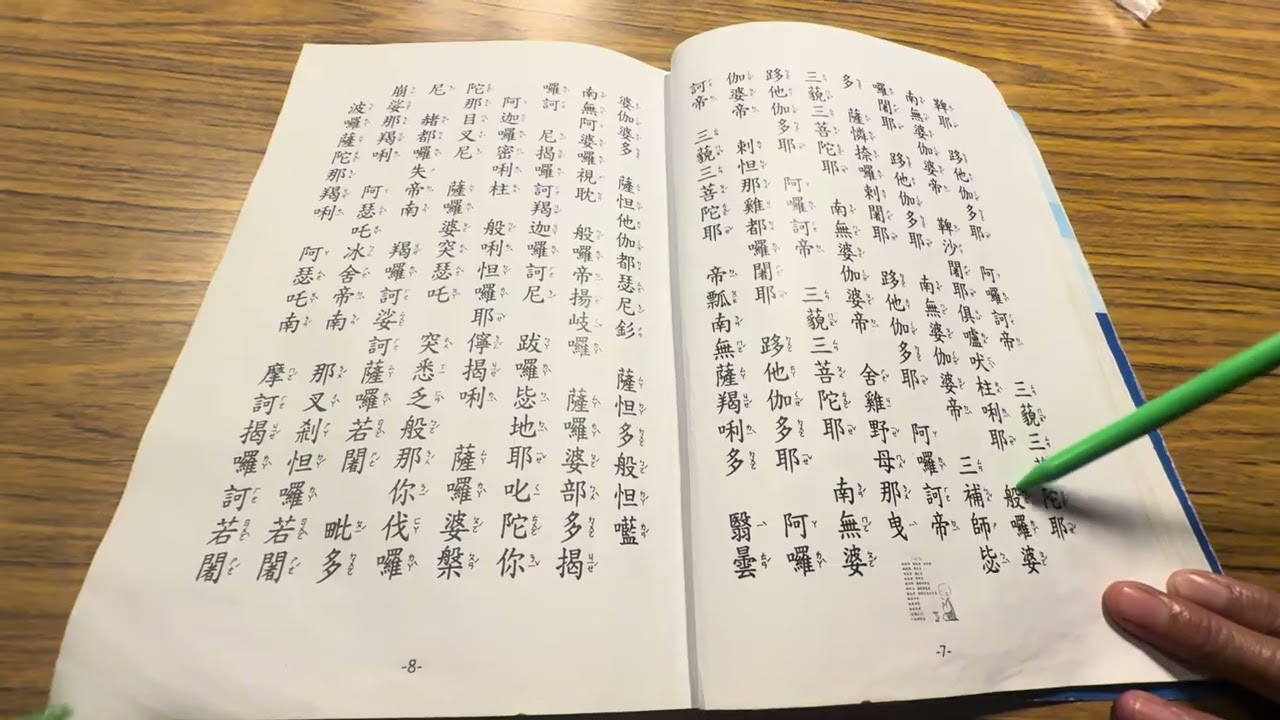 鞞耶 跢他伽多耶 阿囉訶帝 三藐三陀耶
南無婆伽婆帝 鞞沙闍耶俱嚧吠柱唎耶 般囉婆
囉闍耶 跢他伽多耶 南無婆伽婆帝 三補師毖
多 薩憐捺囉剌闍耶 跢他伽多耶 阿囉訶帝
三藐三菩陀耶 南無婆伽婆帝 舍雞野母那曳
跢他伽多耶 阿囉訶帝 三藐三菩陀耶 南無婆
伽婆帝 剌怛那雞都囉闍耶 跢他伽多耶 阿囉
訶帝 三藐三菩陀耶 帝瓢南無薩羯唎多 翳曇
-7-
婆伽婆多 薩怛他伽都瑟尼釤 薩怛多般怛嚂
南無阿婆囉視耽 般囉帝揚岐囉 薩囉婆部多揭
囉訶 尼揭囉訶羯迦囉訶尼 跋囉毖地耶叱陀你
阿迦囉密唎柱 般唎怛囉耶儜揭唎 薩囉婆槃
陀那目叉尼 薩囉婆突瑟吒 突悉乏般那你伐囉
尼 赭都囉失帝南 羯囉訶娑訶薩囉若闍 毗多
崩娑那羯唎 阿瑟吒冰舍帝南 那叉剎怛囉若闍
波囉薩陀那羯唎 阿瑟吒南 摩訶揭囉訶若闍
-8-